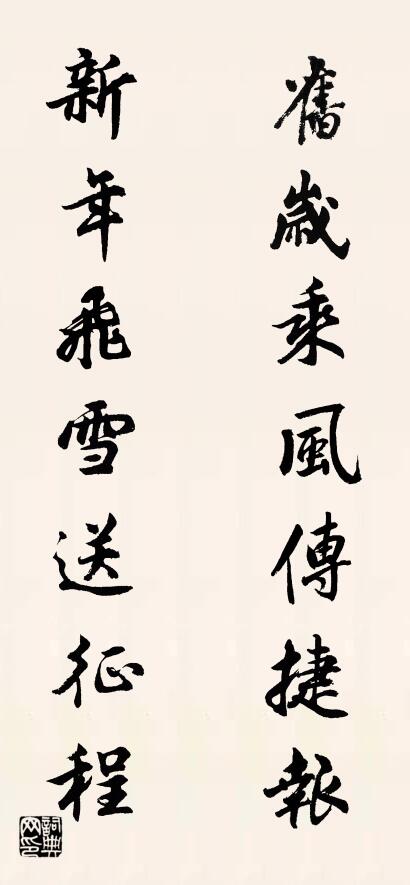 舊歲乘風傳捷報
新年飛雪送征程